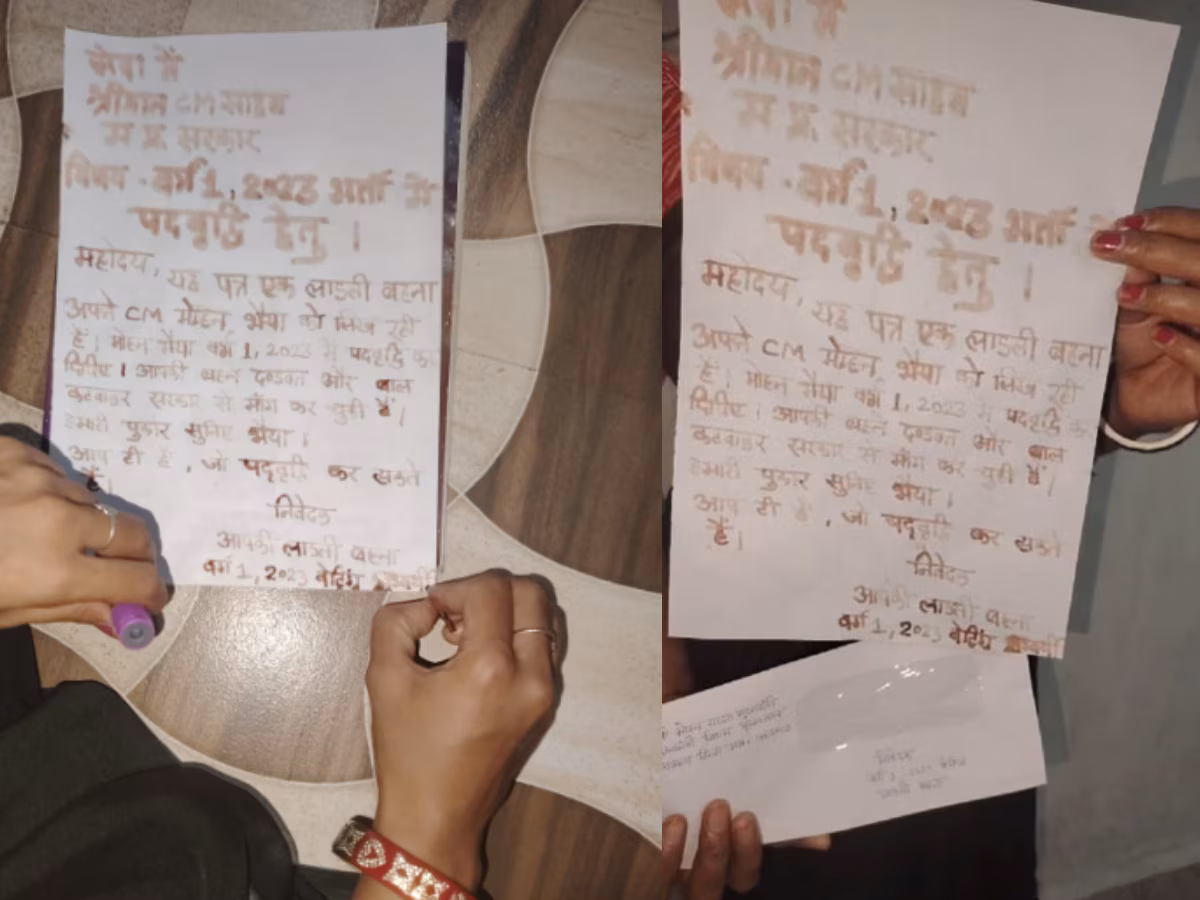 सेवा में
श्रीमान CM साहब
म.प्र. सरकार
विषय - वर्ग 1, 2023 भर्ती में
पदवृद्धि हेतु ।
महोदय, यह पत्र एक लाडली बहना
अपने CM मोहन भैया को लिख रही
हैं। मोहन भैया वर्ग 1, 2023 में पदवृद्धि कर
दीजिए। आपकी बहन दण्डवत और बाल
कटवाकर सरकार से माँग कर चुकी हैं।
हमारी पुकार सुनिए भैया।
आप ही हैं, जो पदवृद्धि कर सकते
हैं।
निवेदक
आपकी लाडली बहना
वर्ग 1, 2023 वेटिंग अभ्यर्थी
सेवा में
श्रीमान CM साहब
म.प्र. सरकार
विषय - वर्ग 1, 2023 भर्ती में
पदवृद्धि हेतु ।
महोदय, यह पत्र एक लाडली बहना
अपने CM मोहन भैया को लिख रही
हैं। मोहन भैया वर्ग 1, 2023 में पदवृद्धि कर
दीजिए। आपकी बहन दण्डवत और बाल
कटवाकर सरकार से माँग कर चुकी हैं।
हमारी पुकार सुनिए भैया।
आप ही हैं, जो पदवृद्धि कर सकते
हैं।
निवेदक
आपकी लाडली बहना
वर्ग 1, 2023 वेटिंग अभ्यर्थी
निवेदक